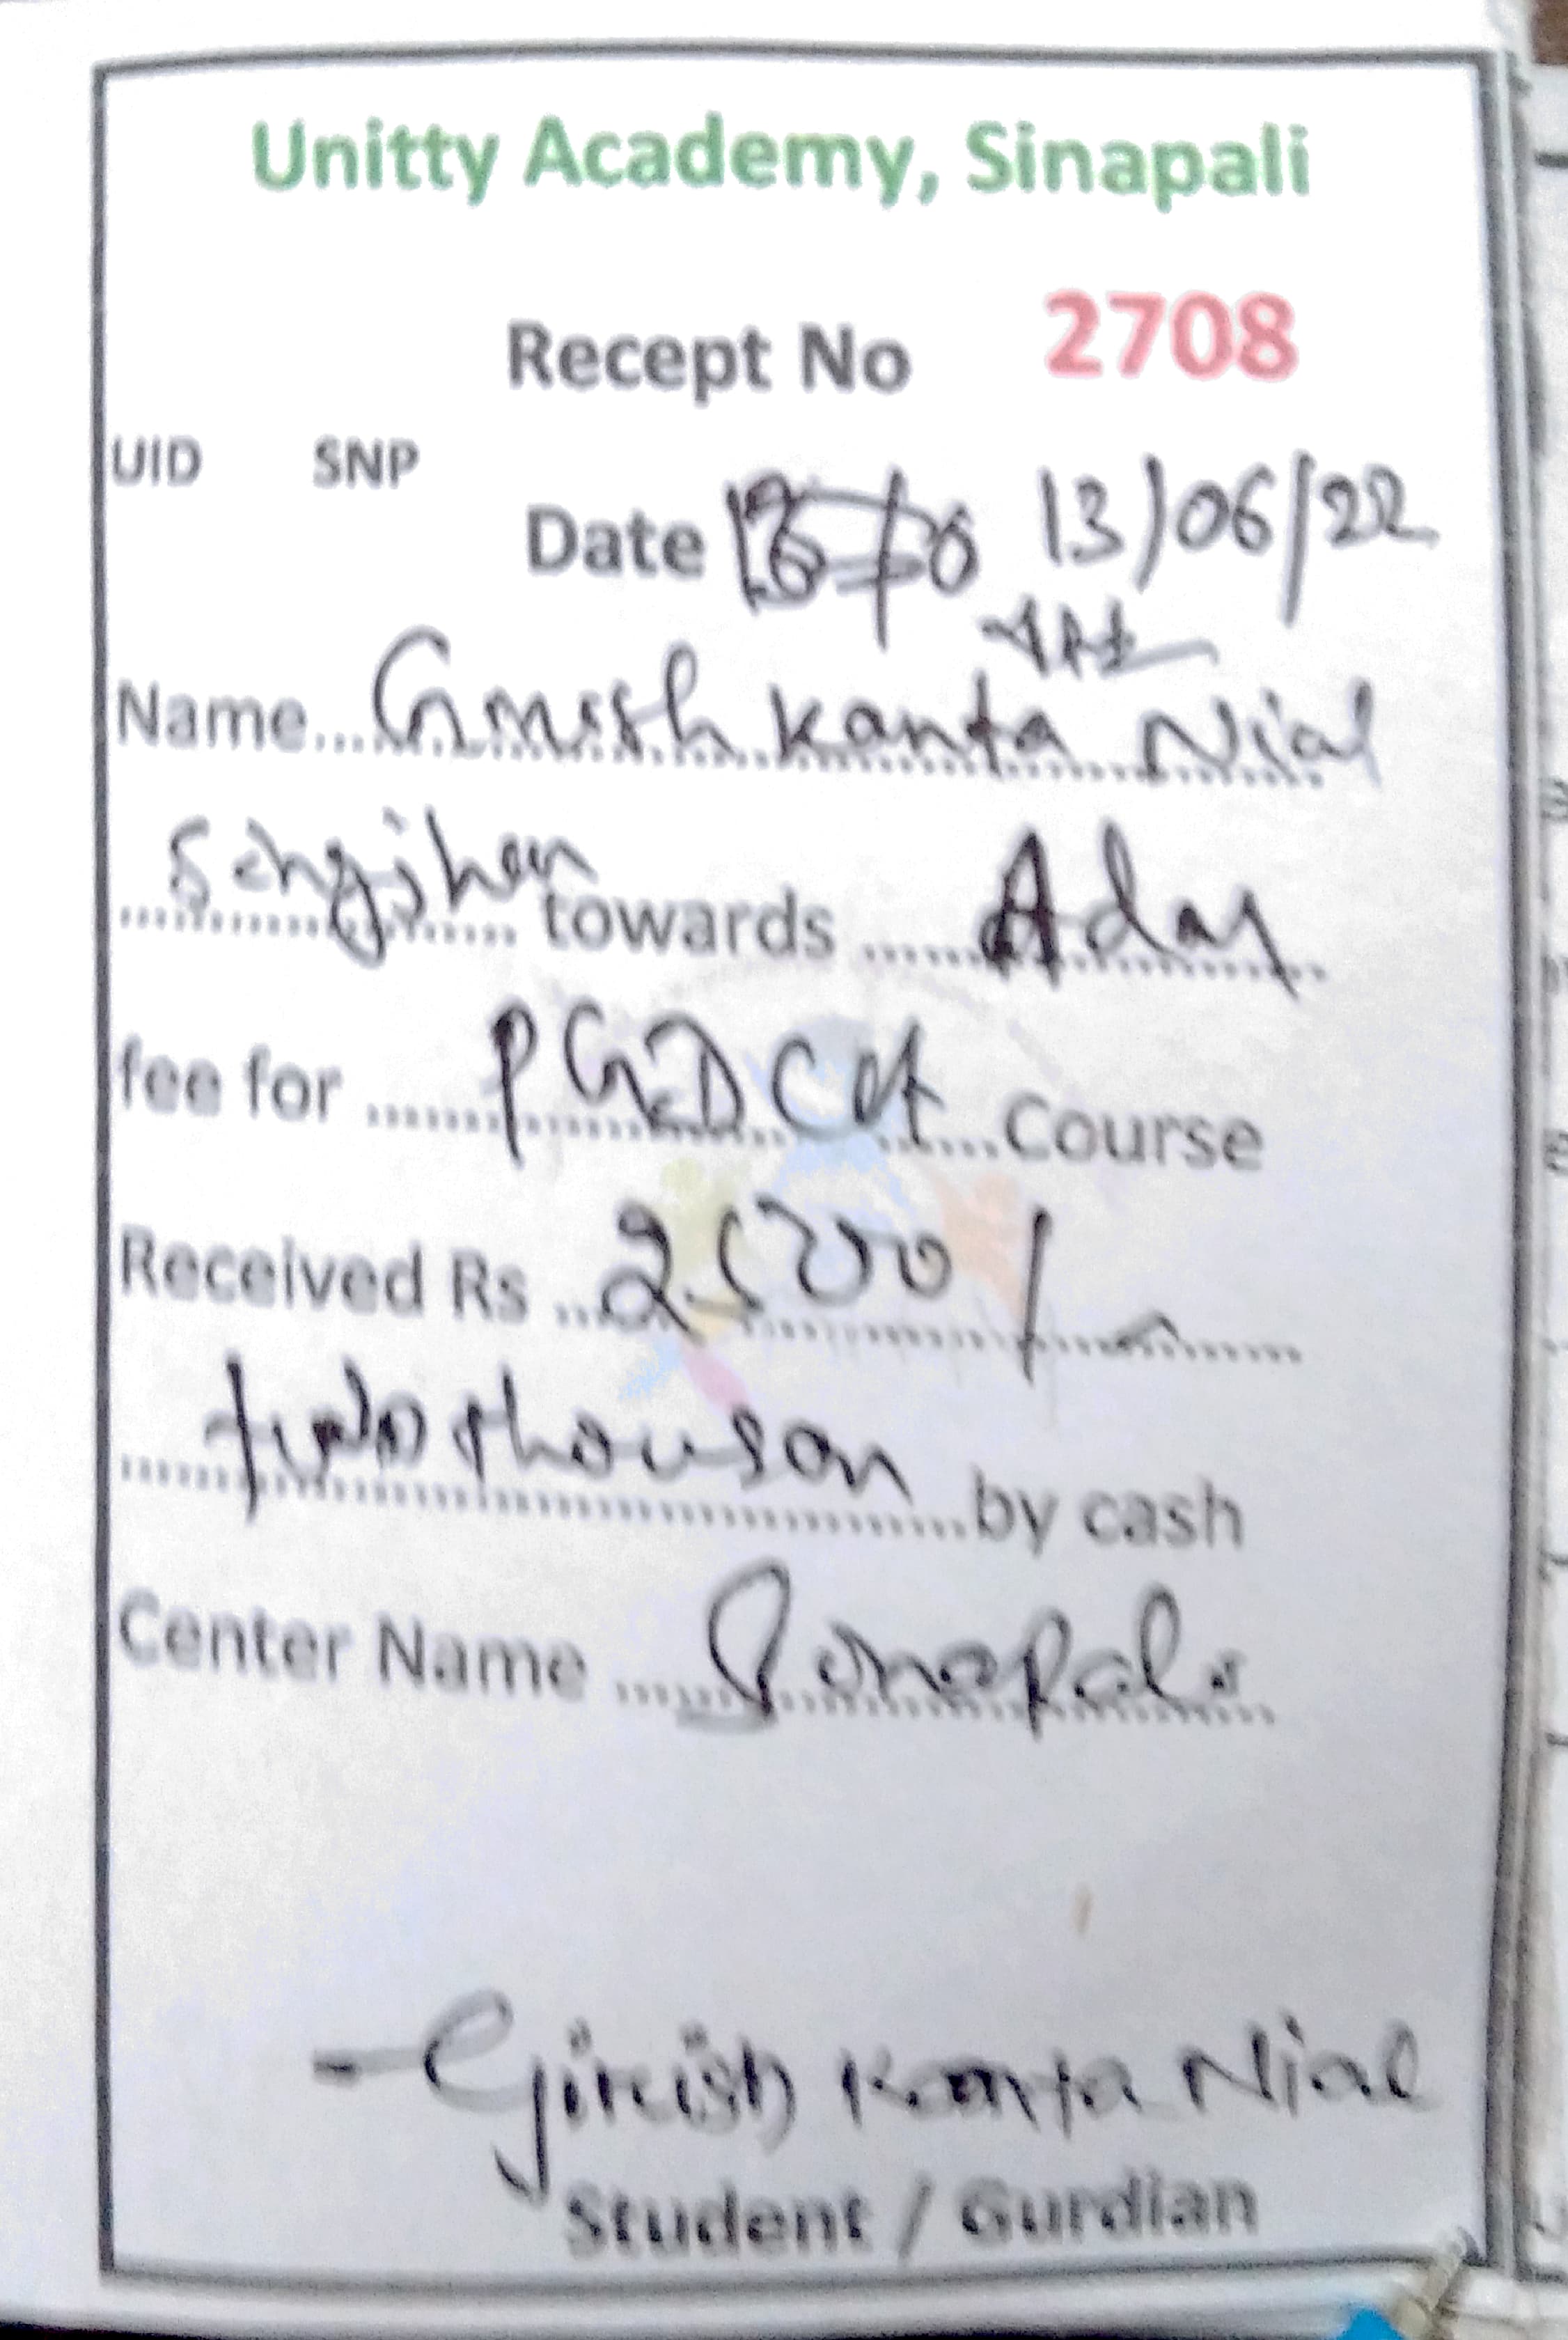 Unitty Academy, Sinapali
Recept No 2708
UID SNP
Date 13/06/22
Name... Kanta Nial
towards ...... Adm
fee for ...... PGDCA ...Course
Received Rs ... 2500/-
two thouson ...by cash
Center Name ...
Girish Kanta Nial
Student / Gurdian